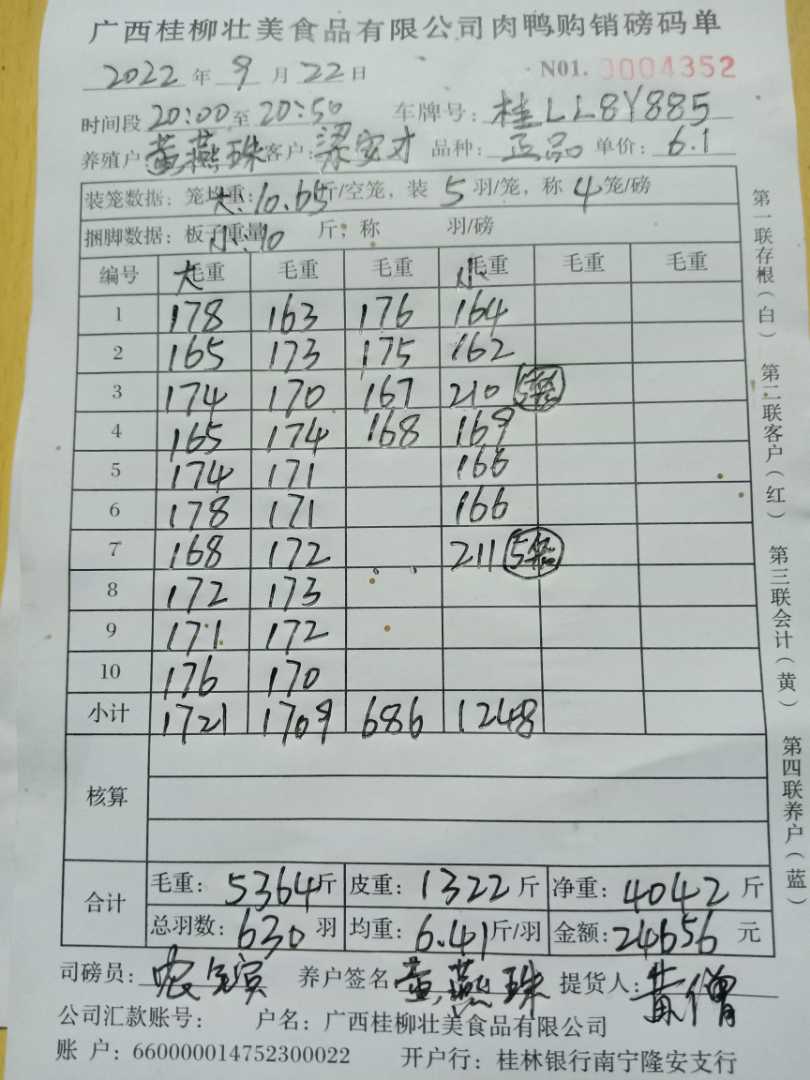 广西桂柳壮美食品有限公司肉鸭购销磅码单
2022 年 9 月 22 日 NO1. 0004352
时间段 20:00 至 20:50 车牌号: 桂LL8Y885
养殖户 黄燕珠 客户: 梁安才 品种: 正品 单价: 6.1
装笼数据: 笼均重: 大:10.65 斤/空笼, 装 5 羽/笼, 称 4 笼/磅
捆脚数据: 板子重量 小:10 斤; 称 羽/磅
编号 大毛重 毛重 毛重 小毛重 毛重 毛重
1 178 163 176 164
2 165 173 175 162
3 174 170 167 210 5笼
4 165 174 168 169
5 174 171 166
6 178 171 166
7 168 172 211 5笼
8 172 173
9 171 172
10 176 170
小计 1721 1709 686 1248
核算
合计
毛重: 5364 斤 皮重: 1322 斤 净重: 4042 斤
总羽数: 630 羽 均重: 6.41 斤/羽 金额: 24656 元
司磅员: 农 宾 养户签名 黄燕珠 提货人: 黄僧
公司汇款账号: 户名: 广西桂柳壮美食品有限公司
账 户: 660000014752300022 开户行: 桂林银行南宁隆安支行
第一联存根(白)
第二联客户(红)
第三联会计(黄)
第四联养户(蓝)